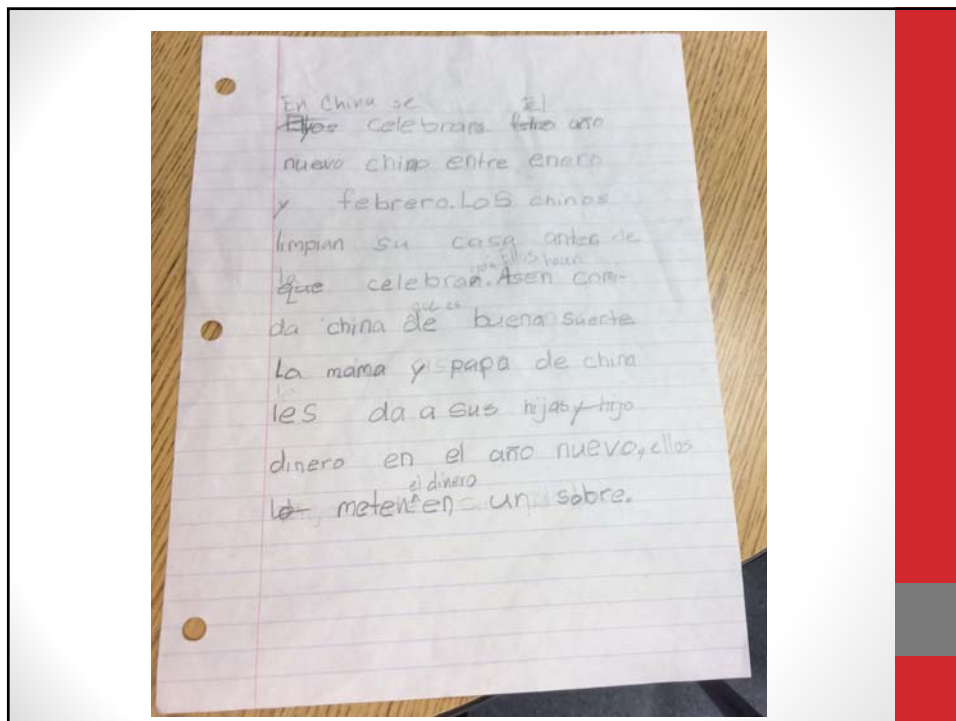 En China se El
Ellos celebran feliz año
nuevo chino entre enero
y febrero. Los chinos
limpian su casa antes de
Ellos hacen
que celebran. Asen comi-
que es
da china de buena suerte.
La mama y papa de china
les da a sus hijas y hijo
dinero en el año nuevo, ellos
el dinero
lo meten en un sobre.